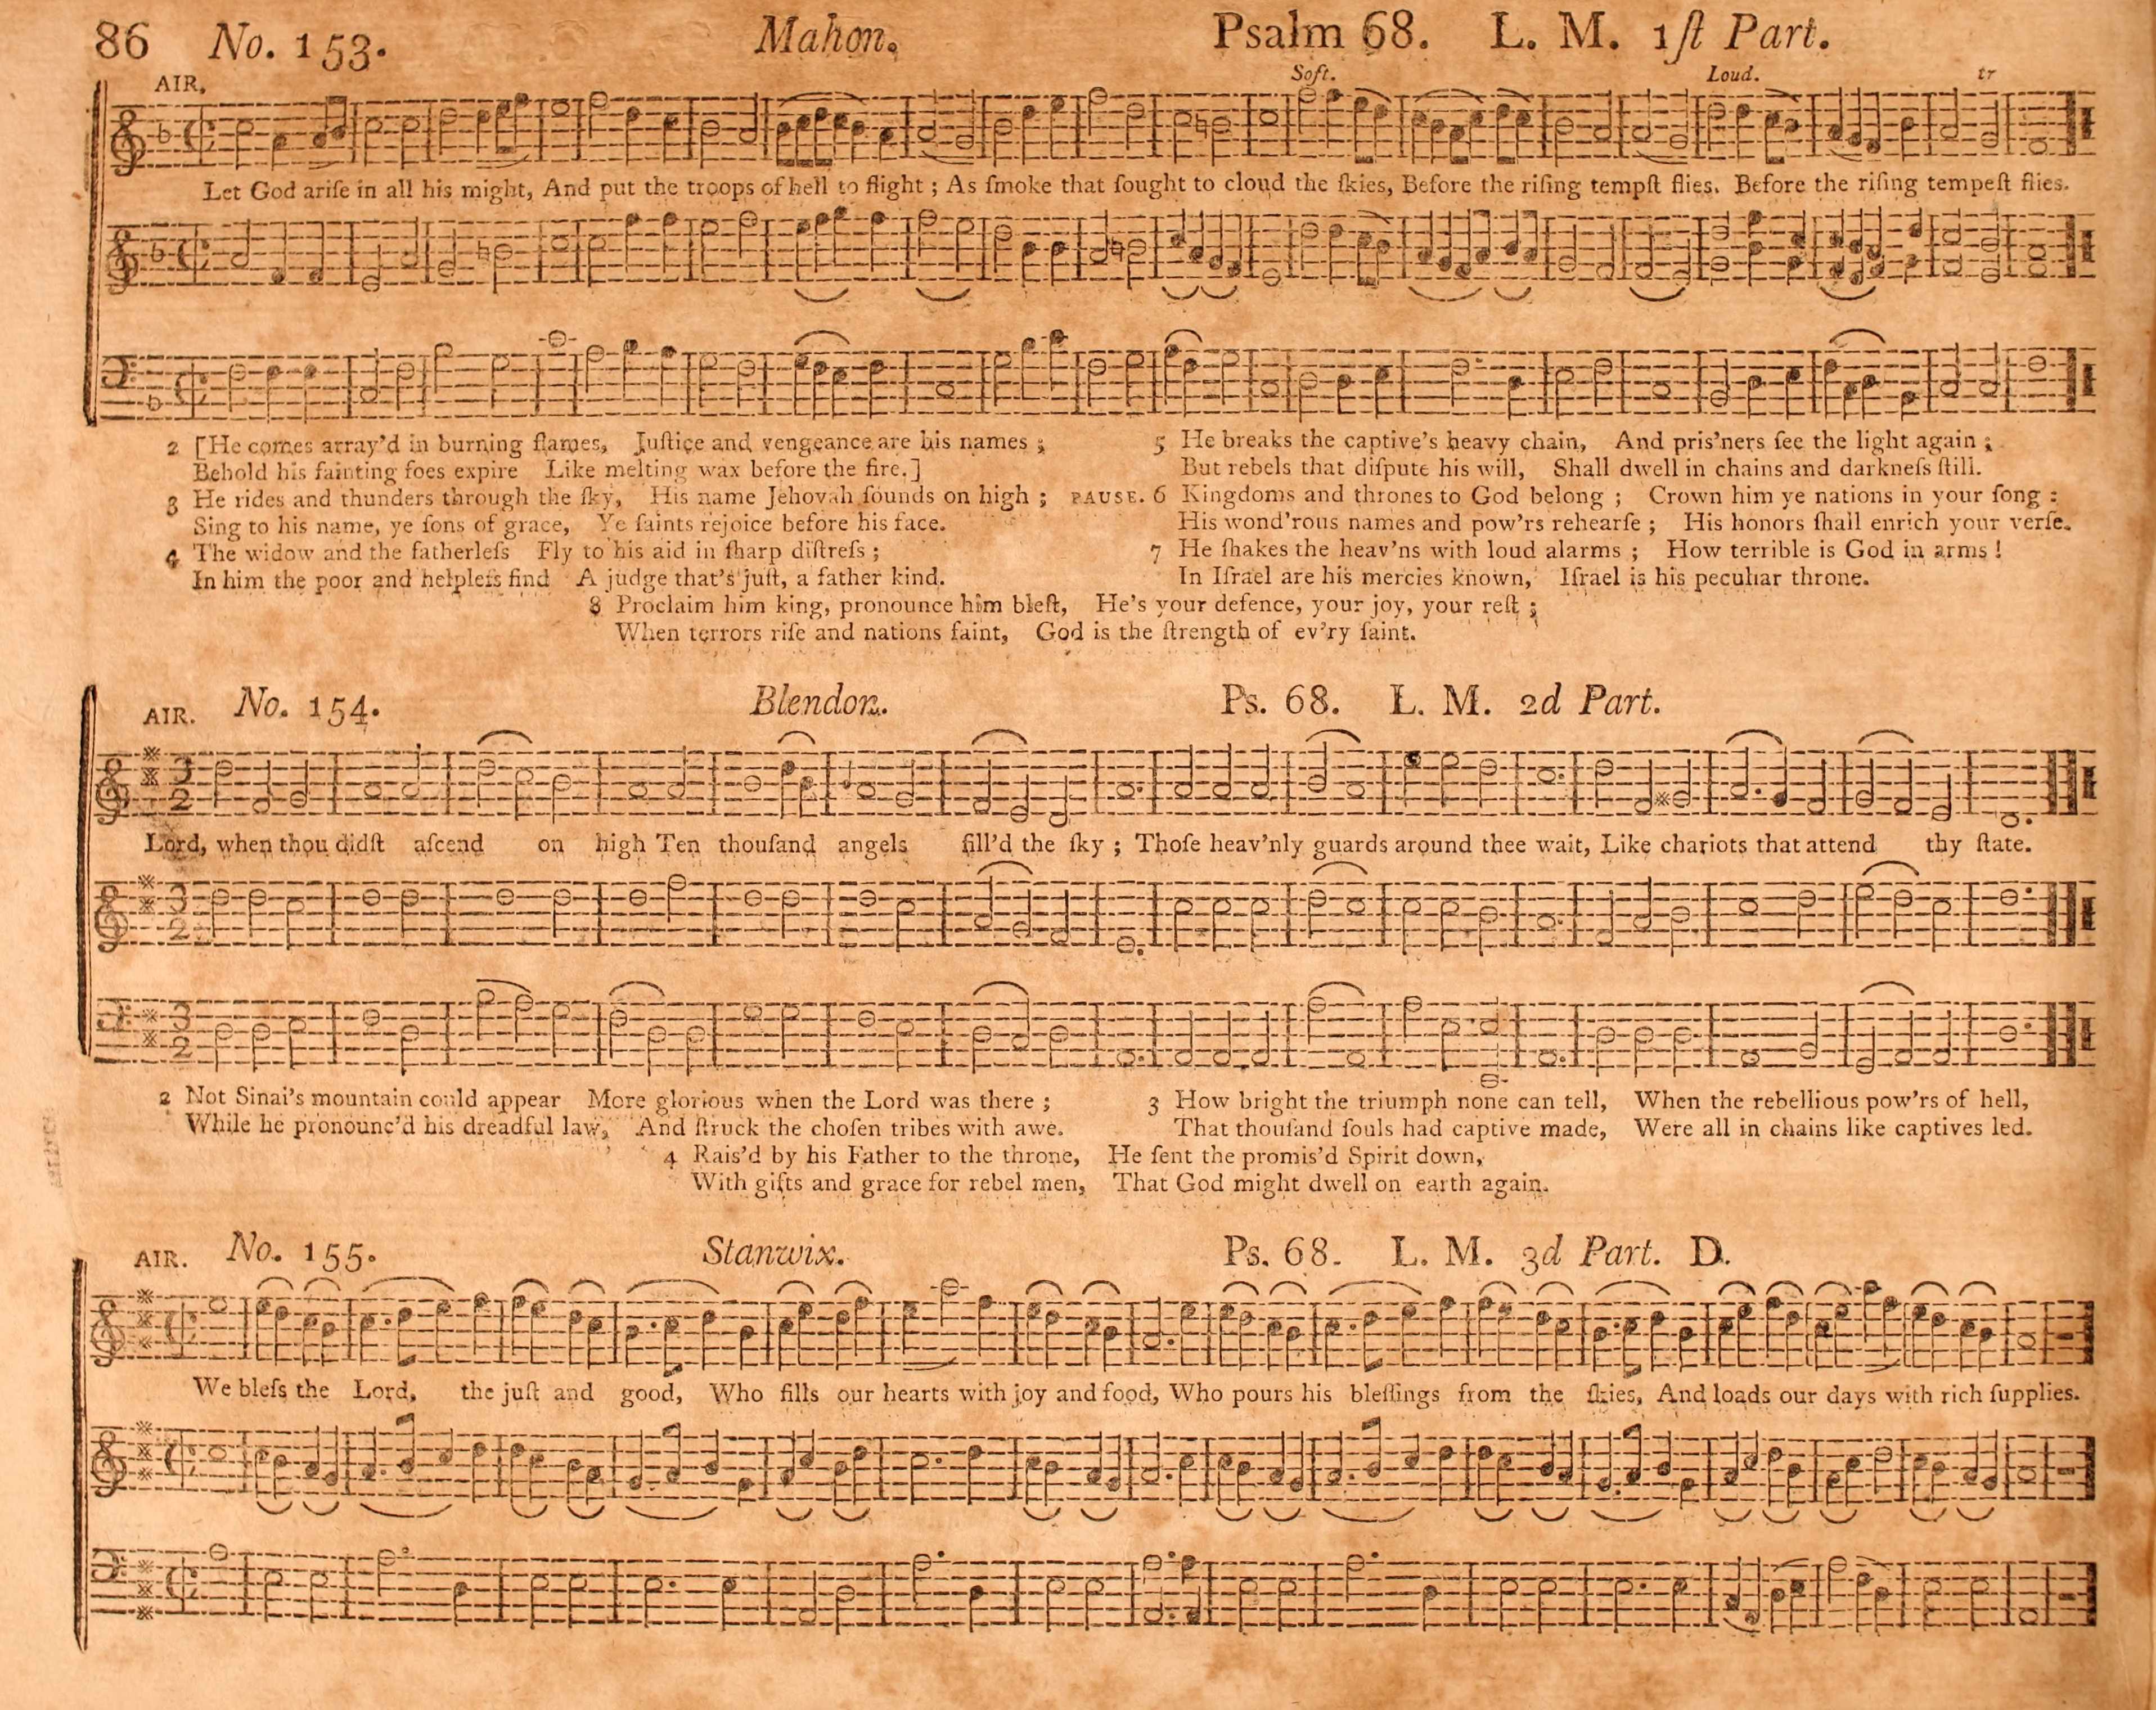 86 No. 153. Mahon. Psalm 68. L. M. 1ſt Part.
AIR. Soft. Loud. tr
Let God ariſe in all his might, And put the troops of hell to flight ; As ſmoke that ſought to cloud the ſkies, Before the riſing tempſt flies. Before the riſing tempeſt flies.
2 [He comes array’d in burning flames, Juſtice and vengeance are his names ;
Behold his fainting foes expire Like melting wax before the fire.]
3 He rides and thunders through the ſky, His name Jehovah ſounds on high ;
Sing to his name, ye ſons of grace, Ye ſaints rejoice before his face.
4 The widow and the fatherleſs Fly to his aid in ſharp diſtreſs ;
In him the poor and helpleſs find A judge that’s juſt, a father kind.
5 He breaks the captive’s heavy chain, And pris’ners ſee the light again ;
But rebels that diſpute his will, Shall dwell in chains and darkneſs ſtill.
PAUSE. 6 Kingdoms and thrones to God belong ; Crown him ye nations in your ſong :
His wond’rous names and pow’rs rehearſe ; His honors ſhall enrich your verſe.
7 He ſhakes the heav’ns with loud alarms ; How terrible is God in arms !
In Iſrael are his mercies known, Iſrael is his peculiar throne.
8 Proclaim him king, pronounce him bleſt, He’s your defence, your joy, your reſt ;
When terrors riſe and nations faint, God is the ſtrength of ev’ry ſaint.
AIR. No. 154. Blendon. Ps. 68. L. M. 2d Part.
3
2
Lord, when thou didſt aſcend on high Ten thouſand angels fill’d the ſky ; Thoſe heav’nly guards around thee wait, Like chariots that attend thy ſtate.
3
2
3
2
2 Not Sinai’s mountain could appear More glorious when the Lord was there ;
While he pronounc’d his dreadful law, And ſtruck the choſen tribes with awe.
3 How bright the triumph none can tell, When the rebellious pow’rs of hell,
That thouſand ſouls had captive made, Were all in chains like captives led.
4 Rais’d by his Father to the throne, He ſent the promis’d Spirit down,
With gifts and grace for rebel men, That God might dwell on earth again.
AIR. No. 155. Stanwix. Ps. 68. L. M. 3d Part. D.
We bleſs the Lord, the juſt and good, Who fills our hearts with joy and food, Who pours his bleſſings from the ſkies, And loads our days with rich ſupplies.